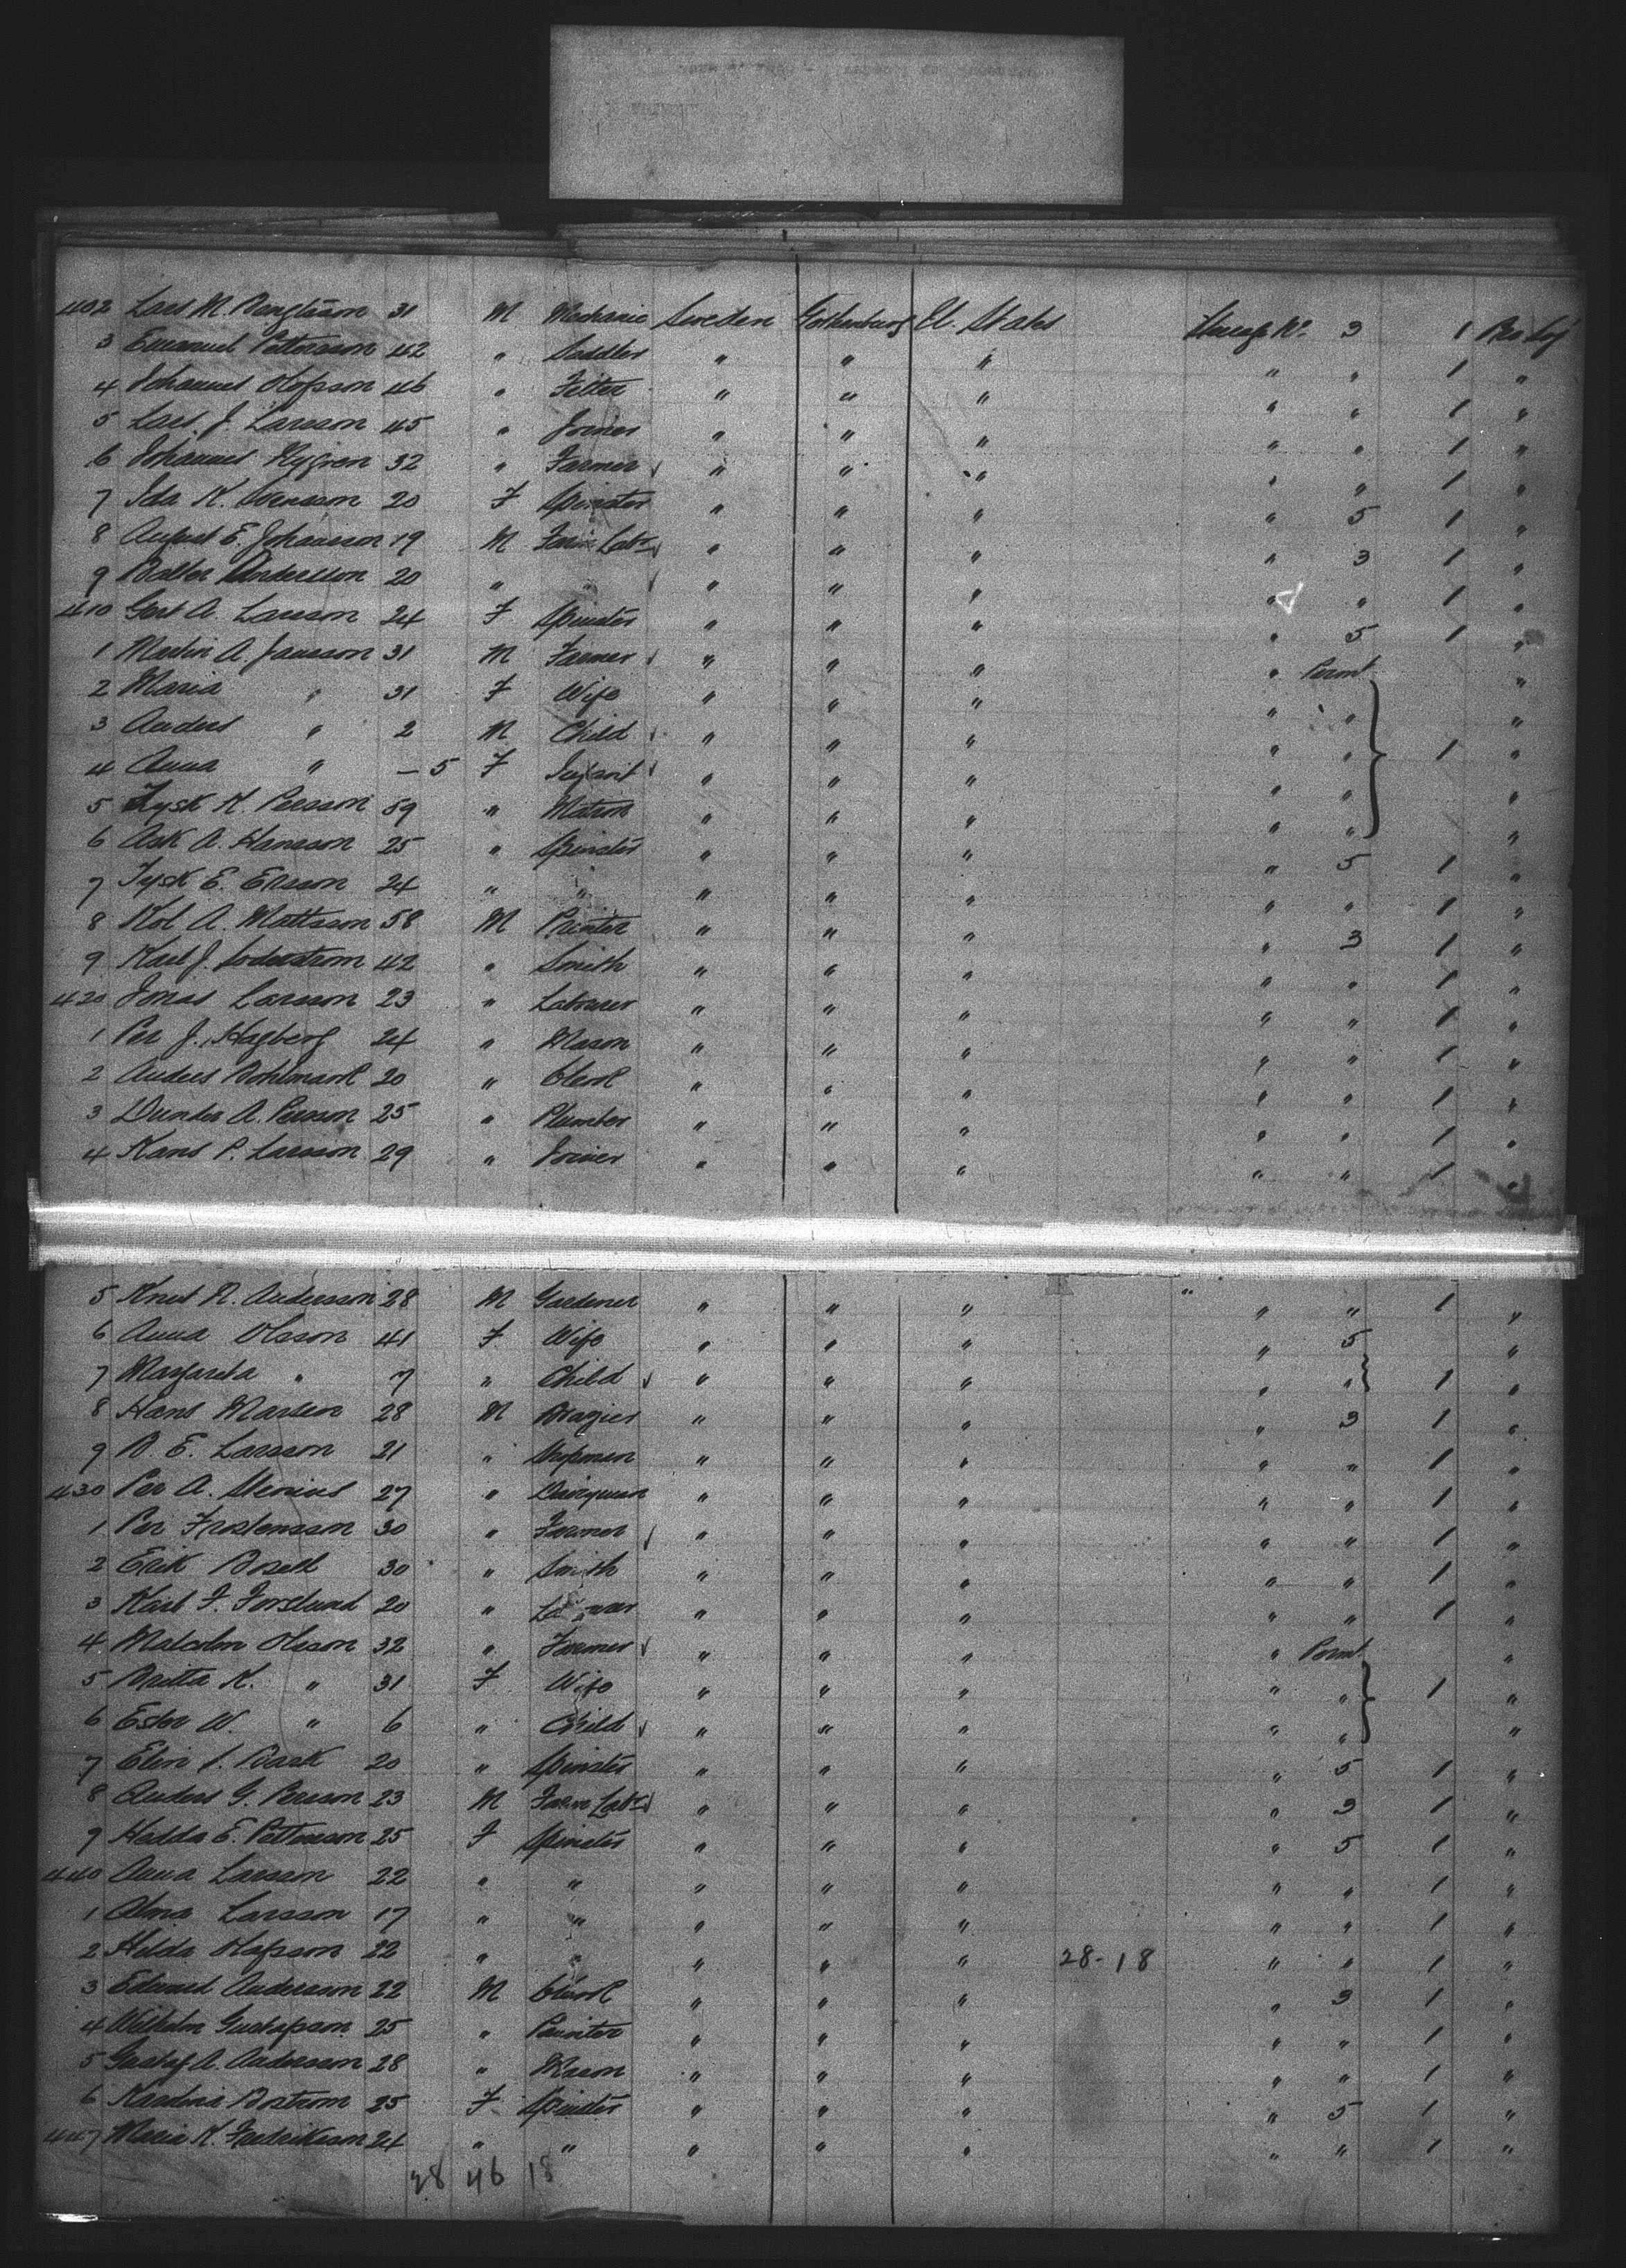 402 Lars M. Bengtsson 31 M Mechanic Sweden Gothenburg U. States Steerage No. 3 1
3 Emanuel Pettersson 42 " Saddler " " " " " 1 "
4 Johannes Olofsson 46 " Fitter " " " " " 1 "
5 Lars J. Larsson 45 " Joiner " " " " " 1 "
6 Johannes Nygren 32 " Farmer " " " " " 1 "
7 Ida K. Svensson 20 F Spinster " " " " 5 1 "
8 August E. Johansson 19 M Farm Labr " " " " 3 1 "
9 Andersson 20 " " " " " " " 1 "
410 Gert A. Larsson 24 F Spinster " " " " 5 1 "
1 Martin A. Jansson 31 M Farmer " " " " Permt "
2 Maria " 31 F Wife " " " " " "
3 Anders " 2 M Child " " " " " 1 "
4 Anna " — 5 F Infant " " " " " "
5 Tysk K. Persson 59 " Matron " " " " " "
6 Ask A. Hansson 25 " Spinster " " " " 5 1 "
7 Tysk E. Ersson 24 " " " " " " " 1 "
8 Kol A. Mattsson 58 M Printer " " " " 3 1 "
9 Karl J. Soderstrom 42 " Smith " " " " " 1 "
420 Jonas Larsson 23 " Labourer " " " " " 1 "
1 Per J. Hagberg 24 " Mason " " " " " 1 "
2 Anders Bohlmark 20 " Clerk " " " " " 1 "
3 Dunder A. Persson 25 " Plumber " " " " " 1 "
4 Hans P. Larsson 29 " Joiner " " " " " 1 "
5 Knut A. Andersson 28 M Gardener " " " " " " 1 "
6 Anna Olsson 41 F Wife " " " " 5 "
7 Margareta " 7 " Child " " " " " 1 "
8 Hans Marsen 28 M Brazier " " " " 3 1 "
9 B. E. Larsson 21 " Shopman " " " " " 1 "
430 Per A. Stenius 27 " Dairyman " " " " " 1 "
1 Per Frostensson 30 " Farmer " " " " " 1 "
2 Erik Bosell 30 " Smith " " " " " 1 "
3 Karl F. Forslund 20 " " " " " " 1 "
4 Malcolm Olsson 32 " Farmer " " " " Permt "
5 Britta K. " 31 F Wife " " " " " 1 "
6 Ester W. " 6 " Child " " " " " "
7 Elin S. Bask 20 " Spinster " " " " 5 1 "
8 Anders G. Persson 23 M Farm Labr " " " " 3 1 "
9 Hedda E. Petterson 25 F Spinster " " " " 5 1 "
440 Anna Larsson 22 " " " " " " " 1 "
1 Alma Larsson 17 " " " " " " " 1 "
2 Hilda Olofsson 22 " " " " " 28-18 " " 1 "
3 Edward Andersson 22 M Clerk " " " " 3 1 "
4 Wilhelm Gustafsson 25 " Painter " " " " " 1 "
5 Gustaf A. Andersson 28 " Mason " " " " " 1 "
6 Karolina Bostrom 25 F Spinster " " " " 5 1 "
447 Maria K. Fredriksson 24 " " " " " " " 1 "
28 46 18